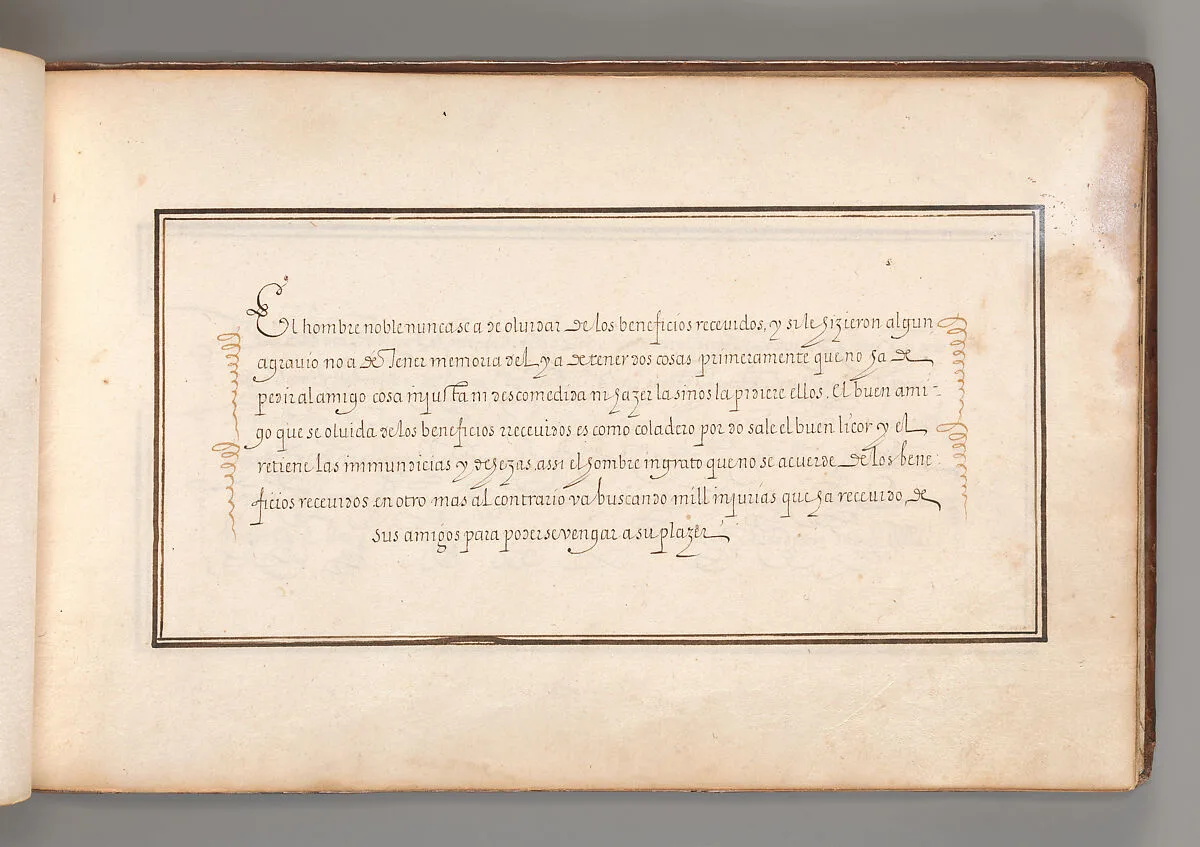 El hombre noble nunca se a de oluidar de los beneficios receuidos, y si le hizieron algun
agrauio no a de tener memoria del y a de tener dos cosas primeramente que no ha de
pedir al amigo cosa injusta ni descomedida ni hazer la si nos la pidiere ellos. El buen ami-
go que se oluida de los beneficios rreceuidos es como coladero por do sale el buen licor y el
retiene las immundicias y dehezas, assi el hombre ingrato que no se acuerde de los bene-
ficios receuidos en otro mas al contrario va buscando mill injurias que ha receuido de
sus amigos para poderse vengar a su plazer